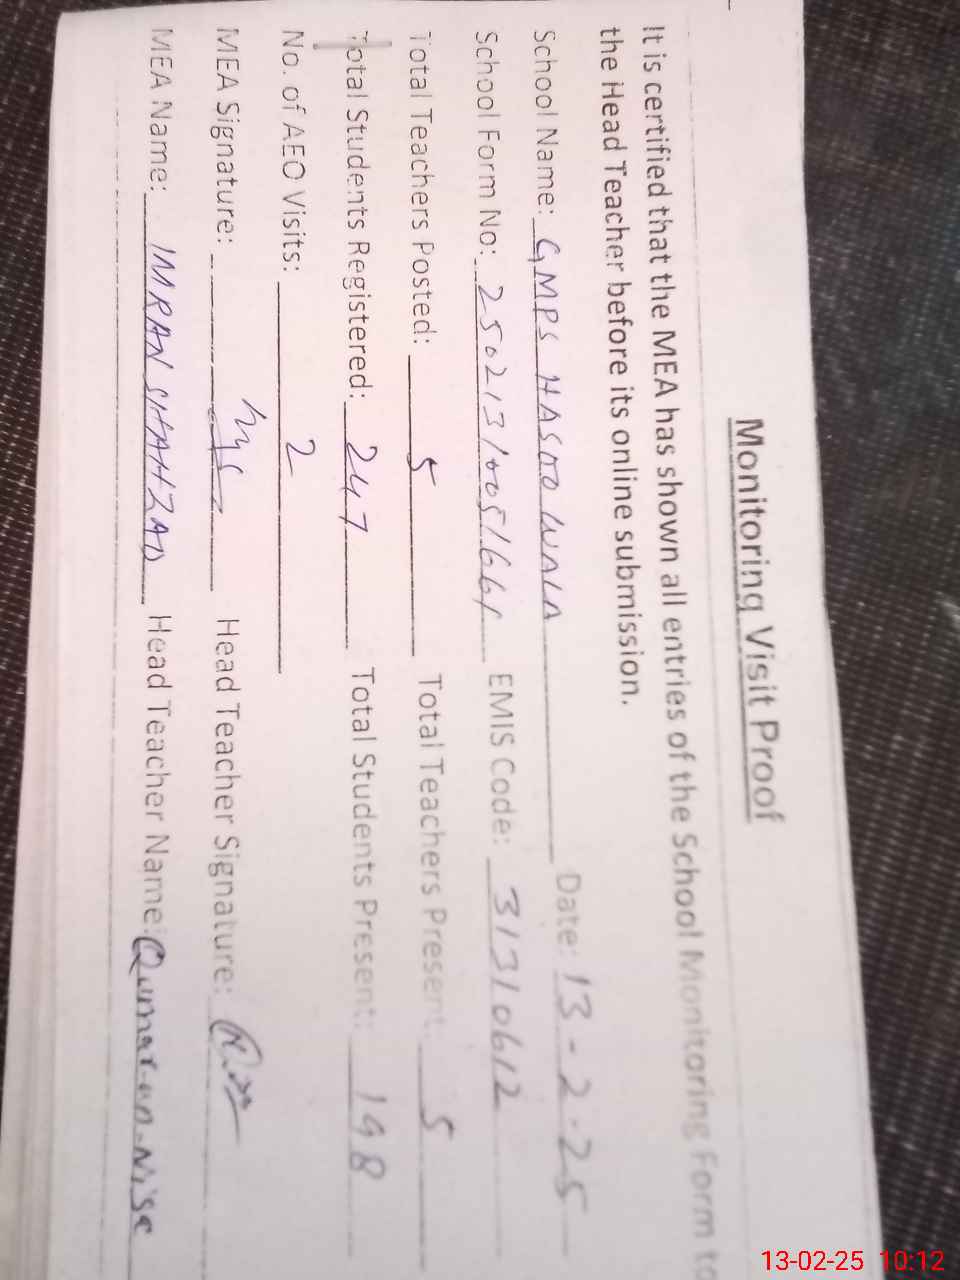 Monitoring Visit Proof
It is certified that the MEA has shown all entries of the School Monitoring Form to
the Head Teacher before its online submission.
School Name: GMPS HASOO WALA Date: 13-2-25
School Form No: 2502131005166 EMIS Code: 31310612
Total Teachers Posted: 5 Total Teachers Present: 5
Total Students Registered: 247 Total Students Present: 198
No. of AEO Visits: 2
MEA Signature: Head Teacher Signature:
MEA Name: IMRAN SHAHZAD Head Teacher Name: Qumar-un-Nisa
13-02-25 10:12